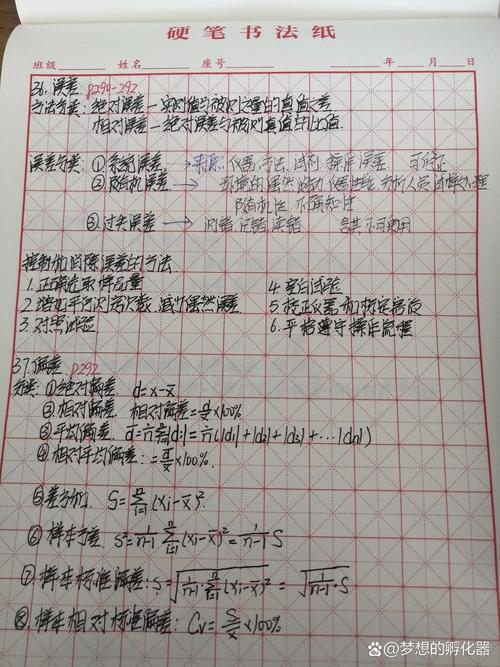 硬笔书法纸
班级 姓名 座号 年 月 日
36. 误差. P290-292
方法分类: 绝对误差 — 实测值与被测之量的真值之差
相对误差 — 绝对误差与被测真值的比值.
误差分类: ① 系统误差 → 来源: 仪器、方法、试剂、操作误差 可校正
② 随机误差 → 环境的偶然波动、仪器性能、分析人员
随机性、不可预知性
③ 过失误差 → 加错、记错、读错 舍弃不可使用
控制和消除误差的方法
1. 正确选取样品量 4. 空白试验
2. 增加平行次数, 减少偶然误差 5. 校正仪器和标定溶液
3. 对照试验 6. 严格遵守操作流程
37. 偏差 P292
分类: ① 绝对偏差. d=x-x̄
② 相对偏差. 相对偏差=d/x̄×100%
③ 平均偏差 d̄=1/n∑|di|=1/n(|d1|+|d2|+|d3|+...|dn|)
④ 相对平均偏差: =d̄/x̄×100%.
⑤ 差方和. S=∑(xi-x̄)²
⑥ 样本方差. S²=1/n-1 ∑(xi-x̄)²=1/n-1 S
⑦ 样本标准偏差: S=√1/n-1·∑(xi-x̄)² = √1/n-1·S
⑧ 样本相对标准偏差: Cv=S/x̄×100%
梦想的孵化器